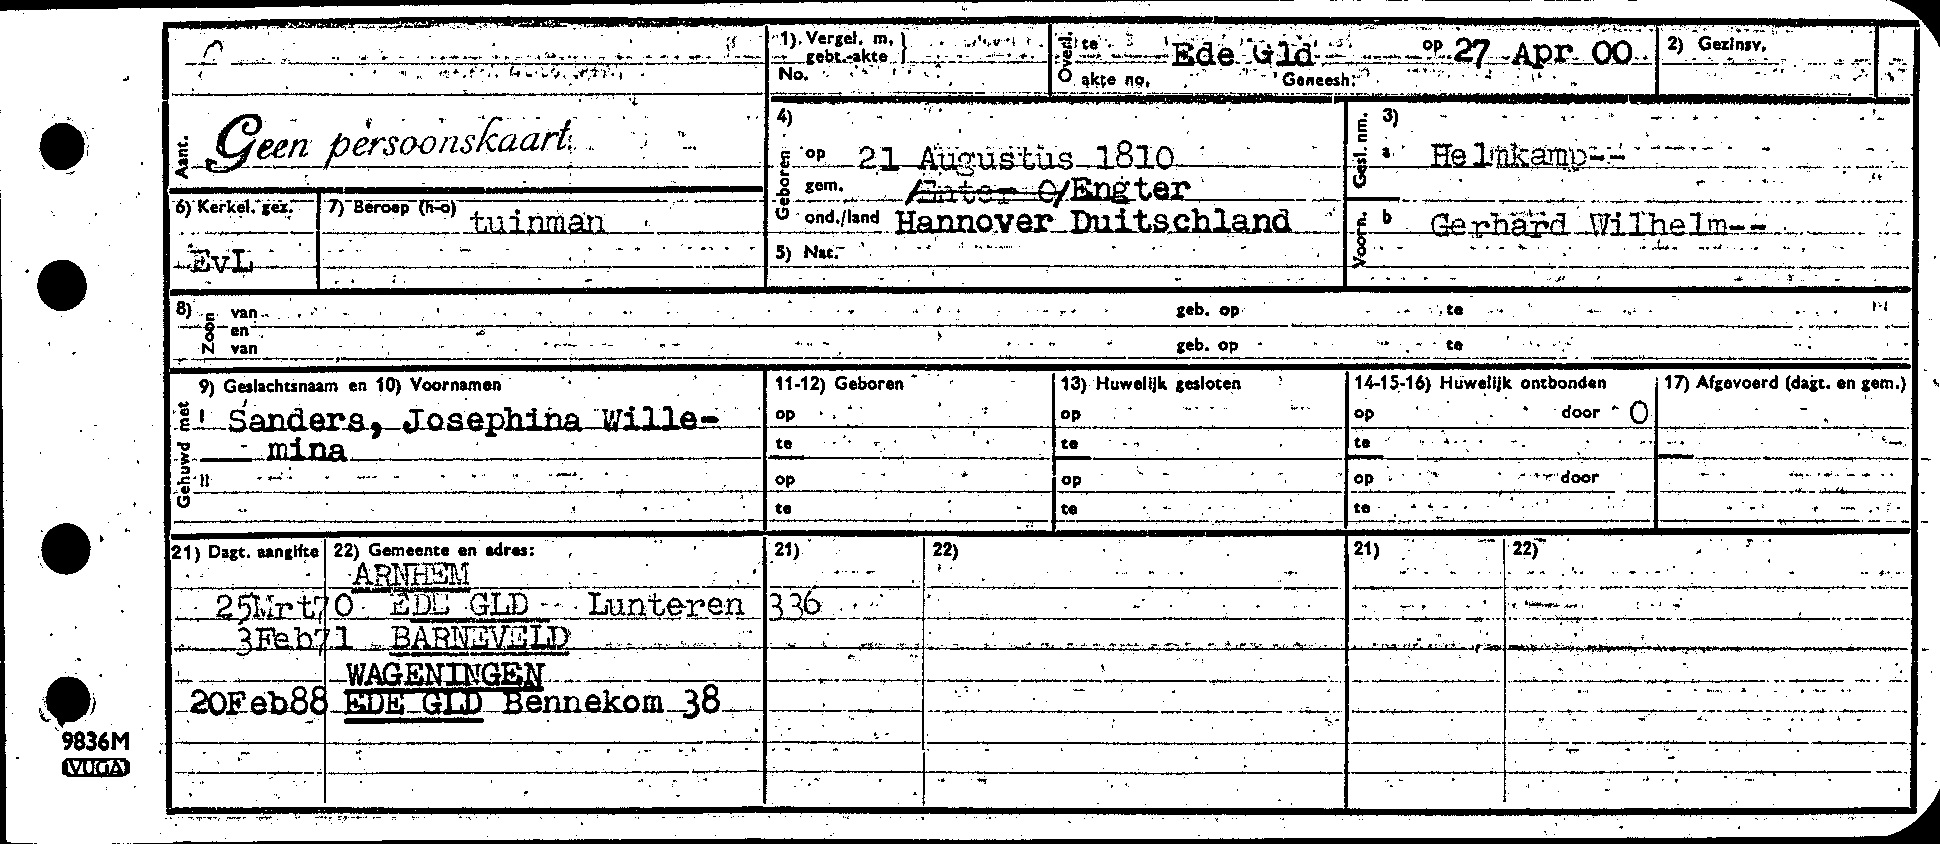 1) Vergel. m. gebt.-akte
No.
Overl. te Ede Gld op 27 Apr 00
akte no. Geneesh.
2) Gezinsv.
Aant. Geen persoonskaart
6) Kerkel. gez.
EvL
7) Beroep (h-o) tuinman
4)
Geboren op 21 Augustus 1810
gem. /Enter O/Engter
ond./land Hannover Duitschland
5) Nat.
3)
Gesl. nm. a Helmkamp--
Voorn. b Gerhard Wilhelm--
8) Zoon van geb. op te
en
van geb. op te
9) Geslachtsnaam en 10) Voornamen
Gehuwd met I Sanders, Josephina Wille-
mina
II
11-12) Geboren
op
te
op
te
13) Huwelijk gesloten
op
te
op
te
14-15-16) Huwelijk ontbonden
op door O
te
op door
te
17) Afgevoerd (dagt. en gem.)
21) Dagt. aangifte 22) Gemeente en adres: 21) 22) 21) 22)
ARNHEM
25Mrt70 EDE GLD Lunteren 336
3Feb71 BARNEVELD
WAGENINGEN
20Feb88 EDE GLD Bennekom 38
9836M
VUGA